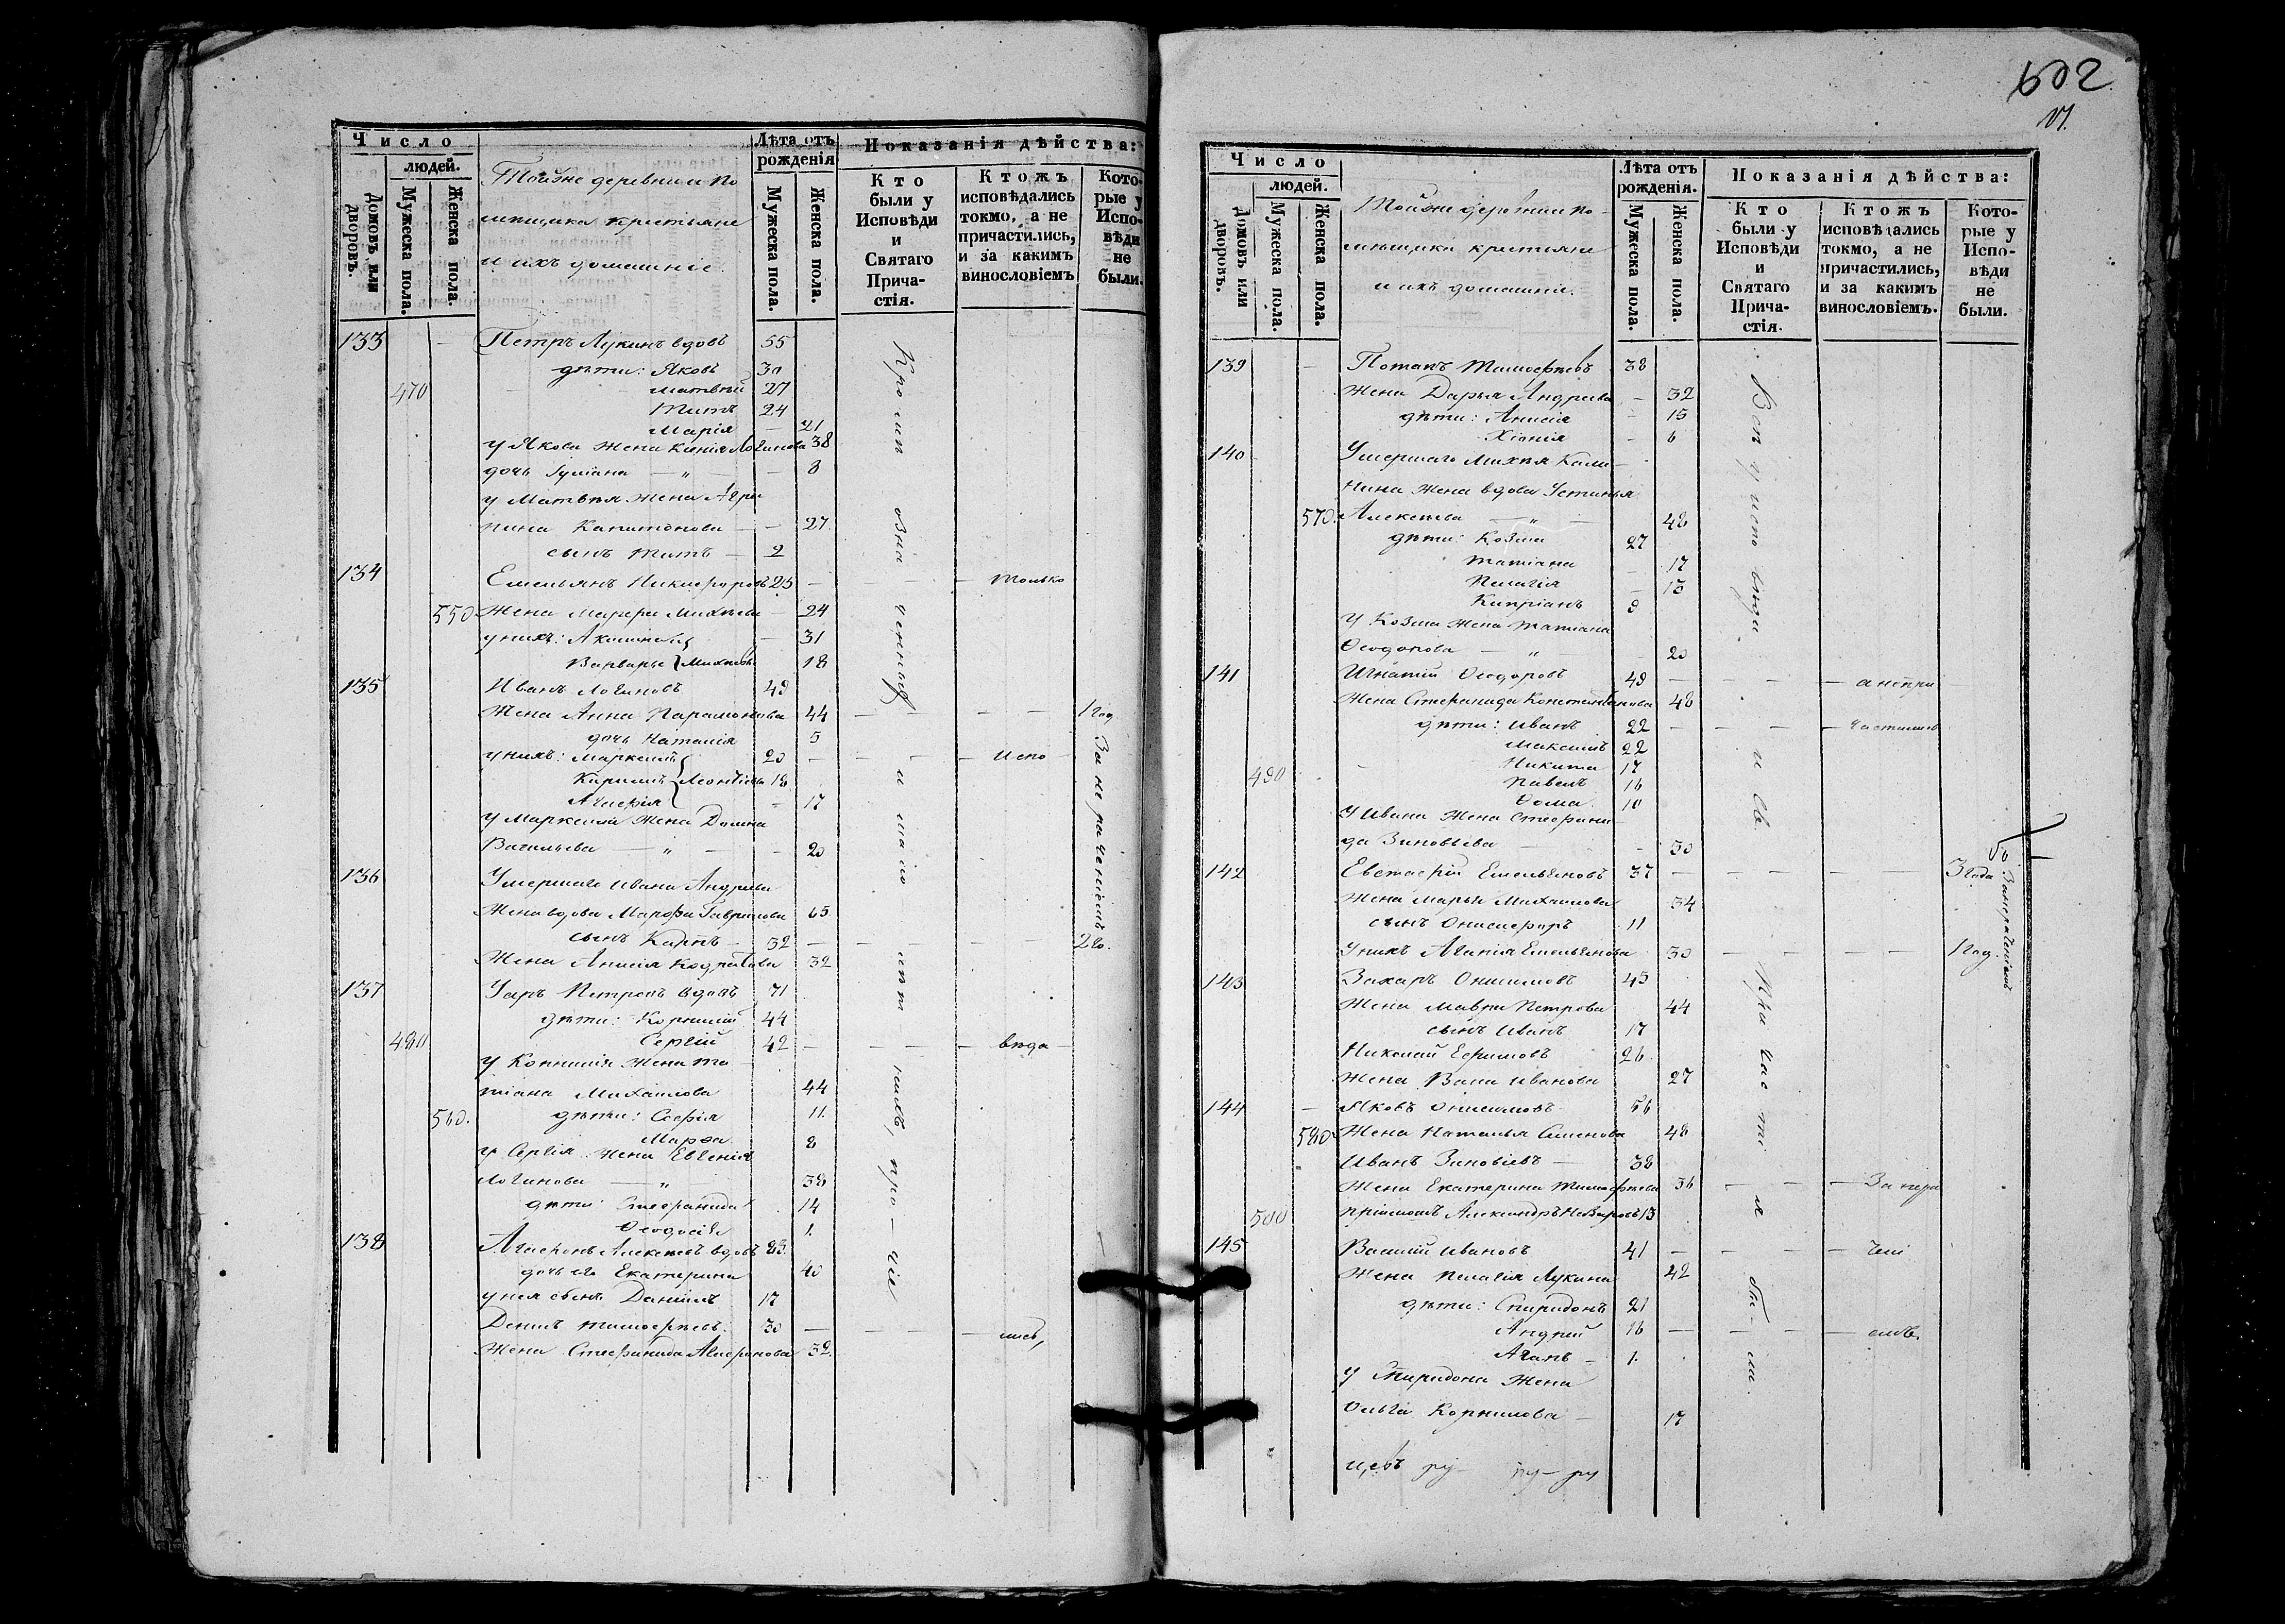 Число
людей.
Домовъ или дворовъ.
Мужеска пола.
Женска пола.
Тойже деревни и по
мѣщика крестьяне
и ихъ домашніе.
Лѣта отъ рожденія
Мужеска пола.
Женска пола.
Показанія дѣйства:
Кто были у Исповѣди и Святаго Причастія.
Ктожъ исповѣдались токмо, а не причастились, и за какимъ винословіемъ
Которые у Исповѣди не были.
133 Петръ Лукинъ вдовъ 55
дѣти: Яковъ 30
470 Матвѣй 27
Титъ 24
Марія 21
у Якова жена Ксенія Логинова 38
дочь Іуліана — „ — 8
у Матвѣя жена Агри
пина Капитонова — 27
сынъ Титъ — 2
134 Емельянъ Никифоровъ 25 — только
550 Жена Марфа Михѣева — 24
у нихъ: 31
Варвара Михѣевы 18
135 Иванъ Логиновъ 49
Жена Анна Парамонова 44 — 1 год
дочь Наталія 5
у нихъ: Маркеллъ 20 — испо
Кириллъ Леонтьевы 18
Агафія 17
у Маркелла жена Домна
Васильева — „ — 20
136 Умершаго Ивана Андреева
Жена вдова Марфа Гаврилова 65
сынъ Карпъ — 32 — 2 го.
Жена Анисія Кодратова 32
137 Уаръ Петровъ вдовъ 71
дѣти: Корнилій 44
480 Сергій 42 — вѣда
у Корнилія жена Та
тіана Михайлова 44
560. дѣти: Софія 11.
Марфа 8
у Сергія жена Евгенія
Логинова — „ — 38
дѣти: Стефанида 14
Ѳеодосія 1.
138 Агафонъ Алексѣевъ вдовъ 65.
дочь его Екатерина 40
у нея сынъ Даніилъ 17
Денисъ Тимофѣевъ. 30 — лись,
Жена Стефанида Агафонова 32.
Кромѣ означенныхъ и мало лѣтнихъ, про—чіе
За нераченіемъ
602
Число
людей.
Домовъ или дворовъ.
Мужеска пола.
Женска пола.
Тойже деревни по
мѣщика крестьяне
и ихъ домашніе.
Лѣта отъ рожденія.
Мужеска пола.
Женска пола.
Показанія дѣйства:
Кто были у Исповѣди и Святаго Причастія.
Ктожъ исповѣдались токмо, а не причастились, и за какимъ винословіемъ.
Которые у Исповѣди не были.
139 Потапъ Тимофѣевъ 38
Жена Дарья Андреева — 32
дѣти: Анисія — 15
Хіонія — 6
140 Умершаго Михѣя Кали
нина жена вдова Устинья
570. Алексѣева — „ — 48
дѣти: Козма 27
Татіана — 17
Пелагія — 13
Кипріанъ 9
у Козмы жена Татіана
Ѳеодорова — „ — 20
141 Игнатій Ѳеодоровъ 49 — а не при
Жена Стефанида Константинова 48
дѣти: Иванъ 22 — частились
Максимъ 22
Никита 17
490 Павелъ 16
Ѳома 10
у Ивана жена Стефани
да Зиновьева — 30
142 Евстафій Емельяновъ 37 — 3 года
Жена Марья Михайлова 34
сынъ Онисифоръ 11
У нихъ Агапія Емельянова 30 — 1 год.
143 Захаръ Онисимовъ 45
Жена Мавра Петрова 44
сынъ Иванъ 17
Николай Ефимовъ 26.
Жена Васса Иванова 27
144 Яковъ Онисимовъ 56
580 Жена Наталья Семенова 48
Иванъ Зиновіевъ — 38
Жена Екатерина Тимофѣева 36 — За нера
500 пріемышъ Александръ Назаровъ 13
145 Василій Ивановъ 41 — чені
Жена Пелагія Лукина 42
дѣти: Спиридонъ 21
Андрей 16 — емъ.
Агапъ — 1.
у Спиридона жена
Ольга Корнилова — 17
Всѣ у исповѣди и св. причастія бы—ли.
За нераченіемъ